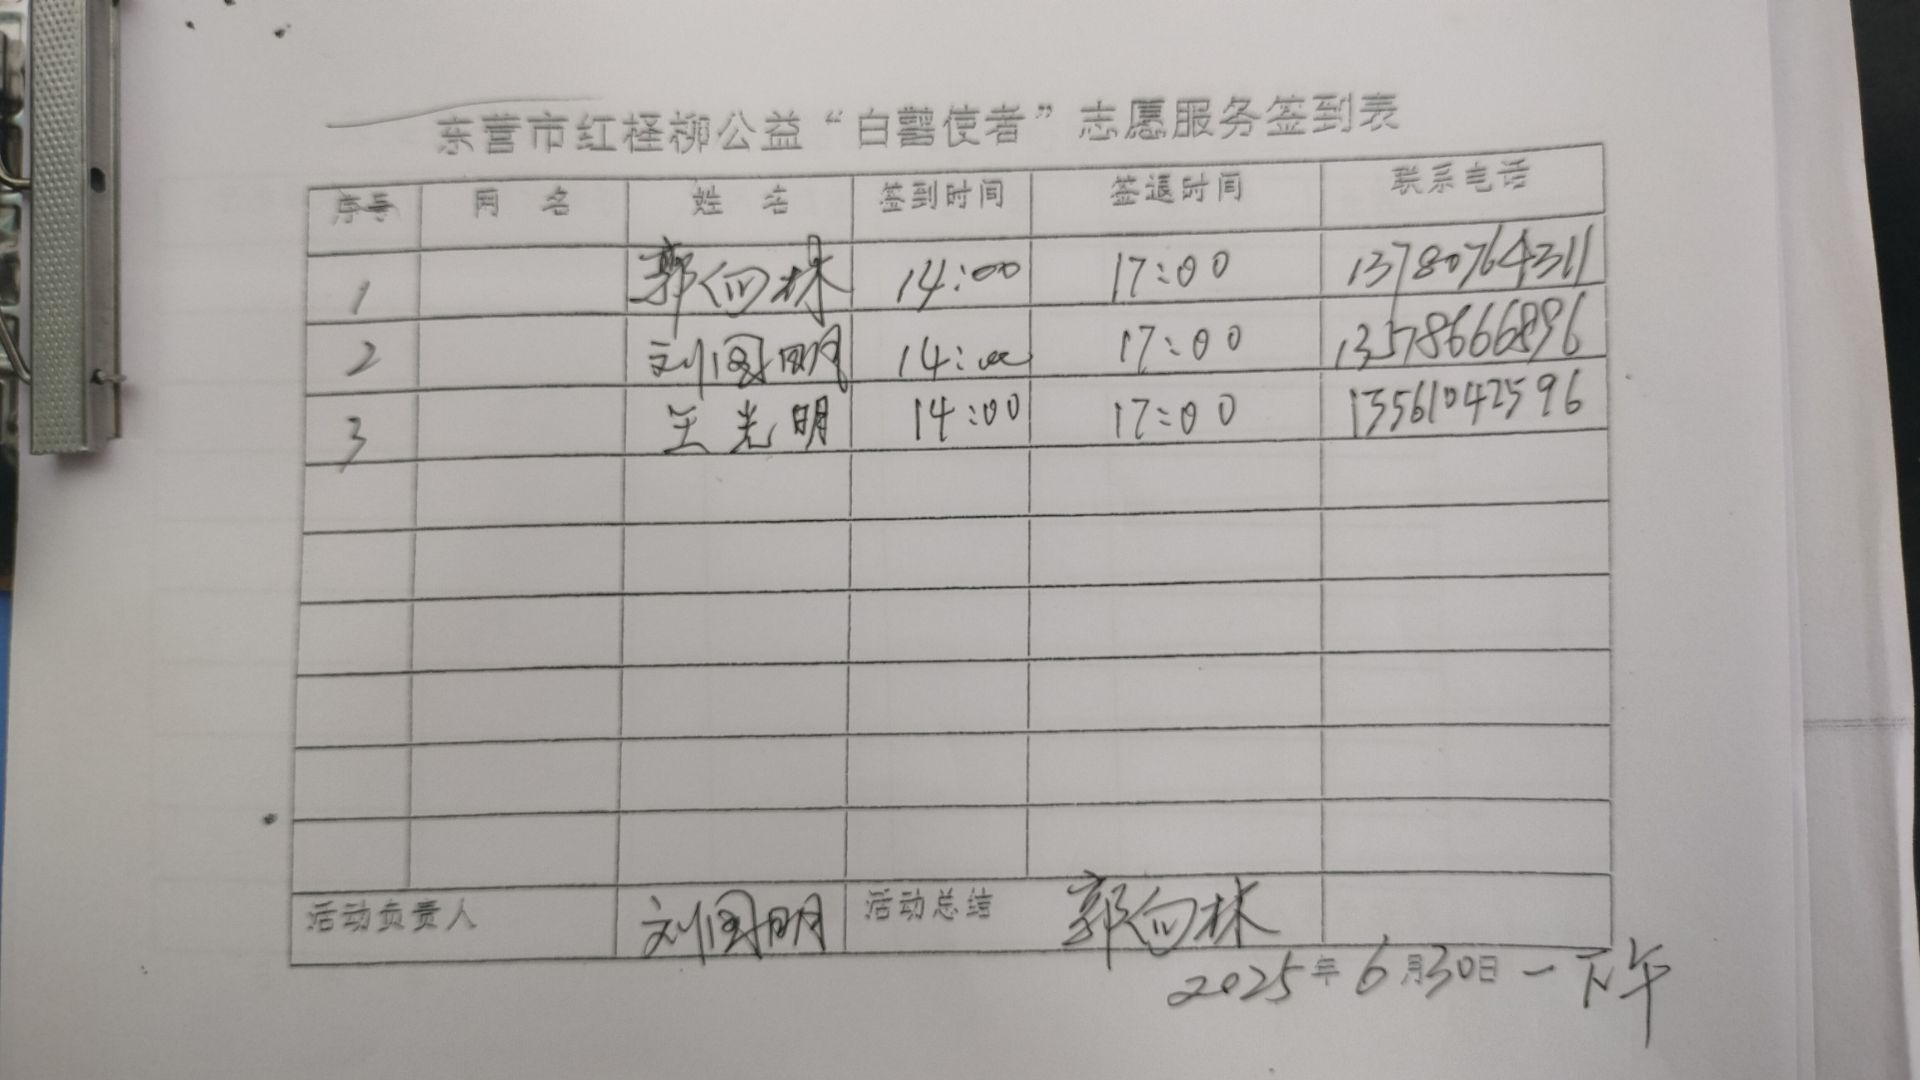 东营市红柽柳公益“白鹳使者”志愿服务签到表
序号 网 名 姓 名 签到时间 签退时间 联系电话
1 郭向林 14:00 17:00 13780764311
2 刘国明 14:00 17:00 13578666896
3 王光明 14:00 17:00 13561042596
活动负责人 刘国明 活动总结 郭向林
2025年6月30日一下午